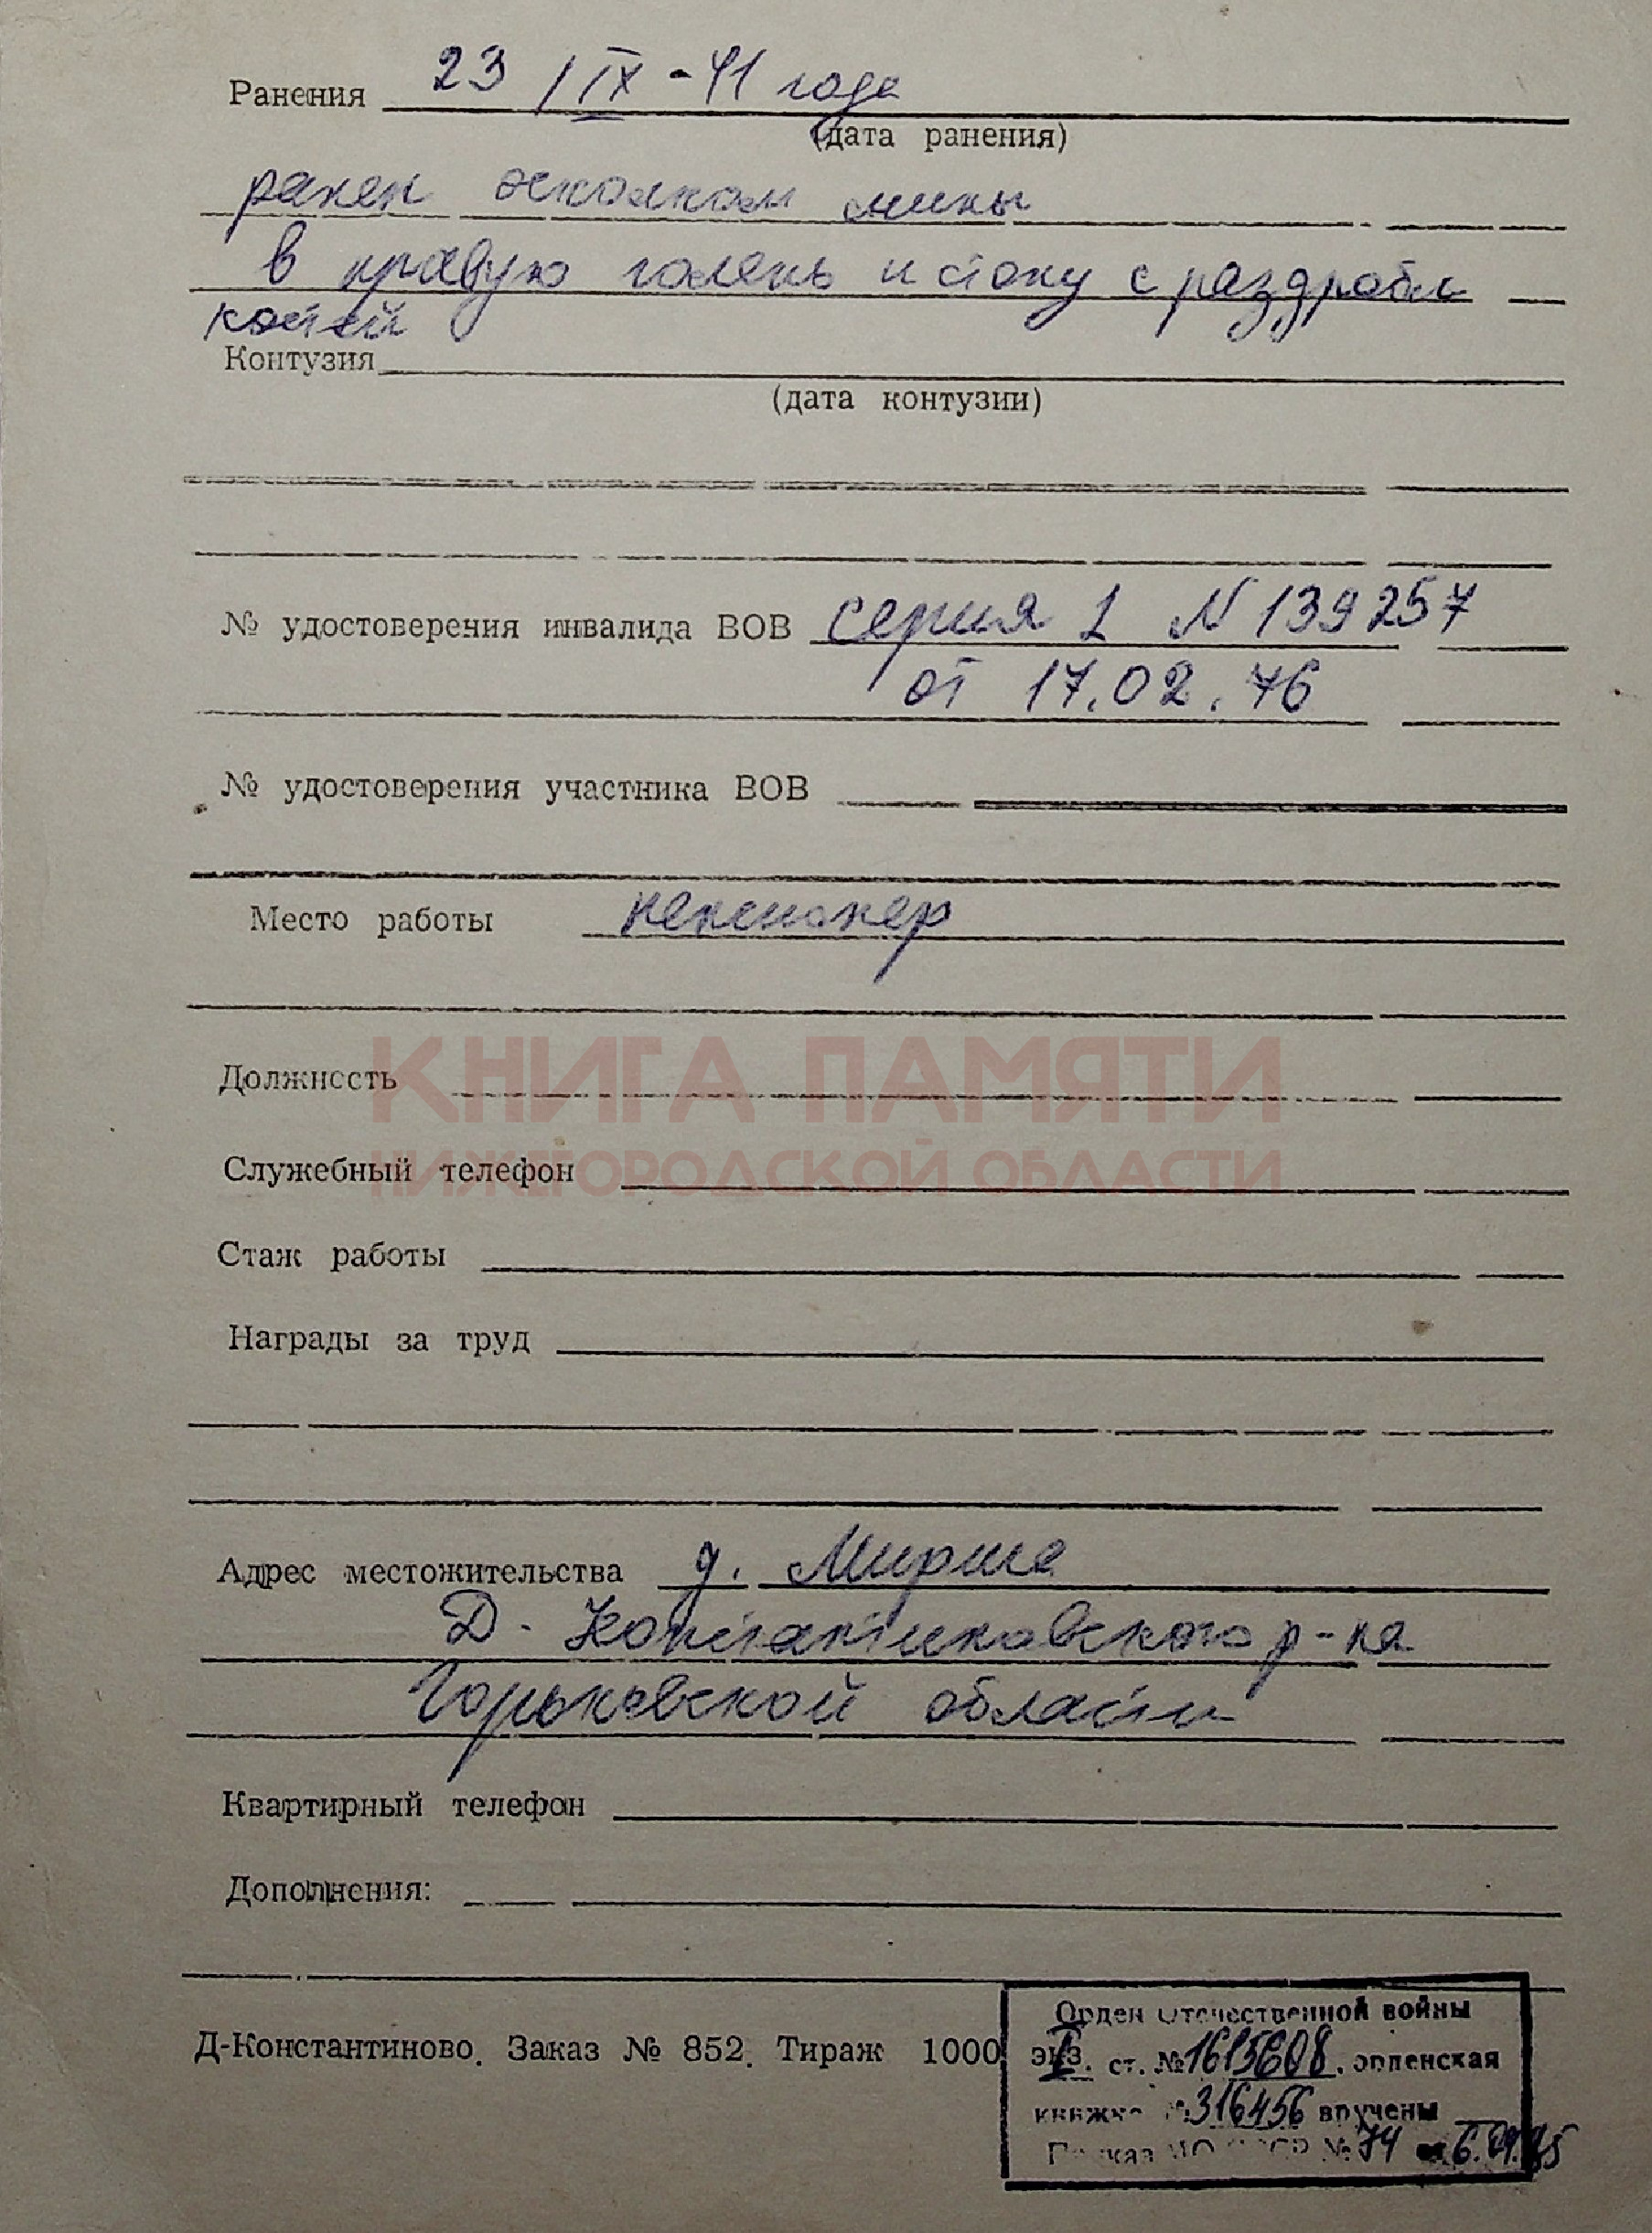 Ранения 23 / IX - 41 года
(дата ранения)
ранен осколком мины
в правую голень и стопу с раздробл
костей
Контузия
(дата контузии)
№ удостоверения инвалида ВОВ серия 1 N 139257
от 17.02.76
№ удостоверения участника ВОВ
Место работы пенсионер
КНИГА ПАМЯТИ
Должность
НИЖЕГОРОДСКОЙ ОБЛАСТИ
Служебный телефон
Стаж работы
Награды за труд
Адрес местожительства д. Мирша
Д. Константиновского р-на
Горьковской области
Квартирный телефон
Дополнения:
Д-Константиново. Заказ № 852. Тираж 1000 экз.
Орден Отечественной войны
I ст. № 1615608. орденская
книжка № 316456 вручены
Приказ МО СССР № 74